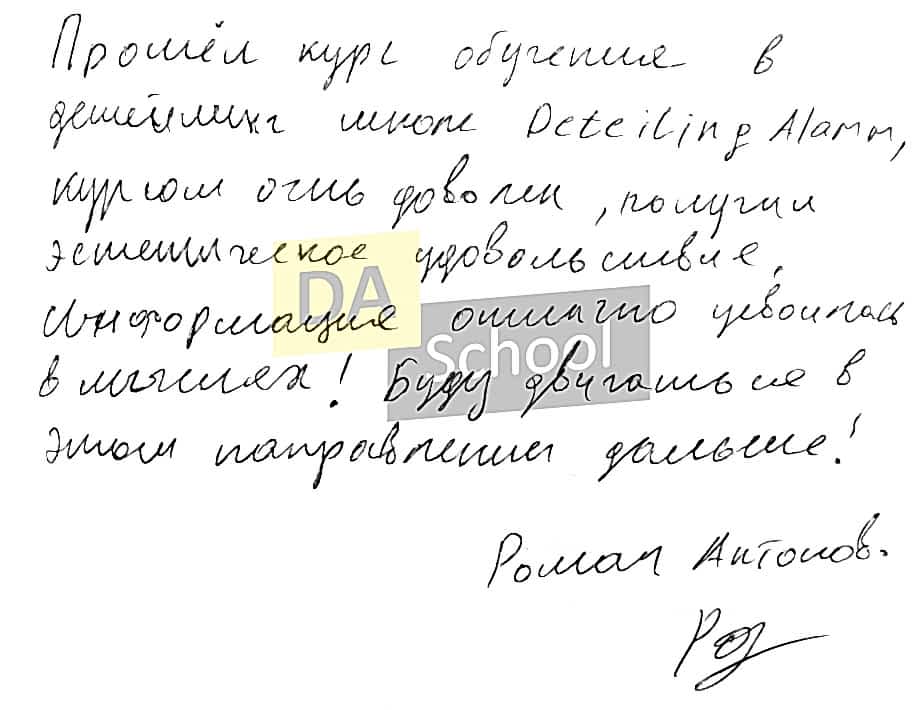 Прошёл курс обучения в
детейлинг школе Deteiling Alarm,
курсом очнь доволен, получил
эстетическое удовольствие,
Информация отлично усвоилась
в мыслях! Буду двигаться в
этом направлении дальше!
DA
School
Роман Антонов.